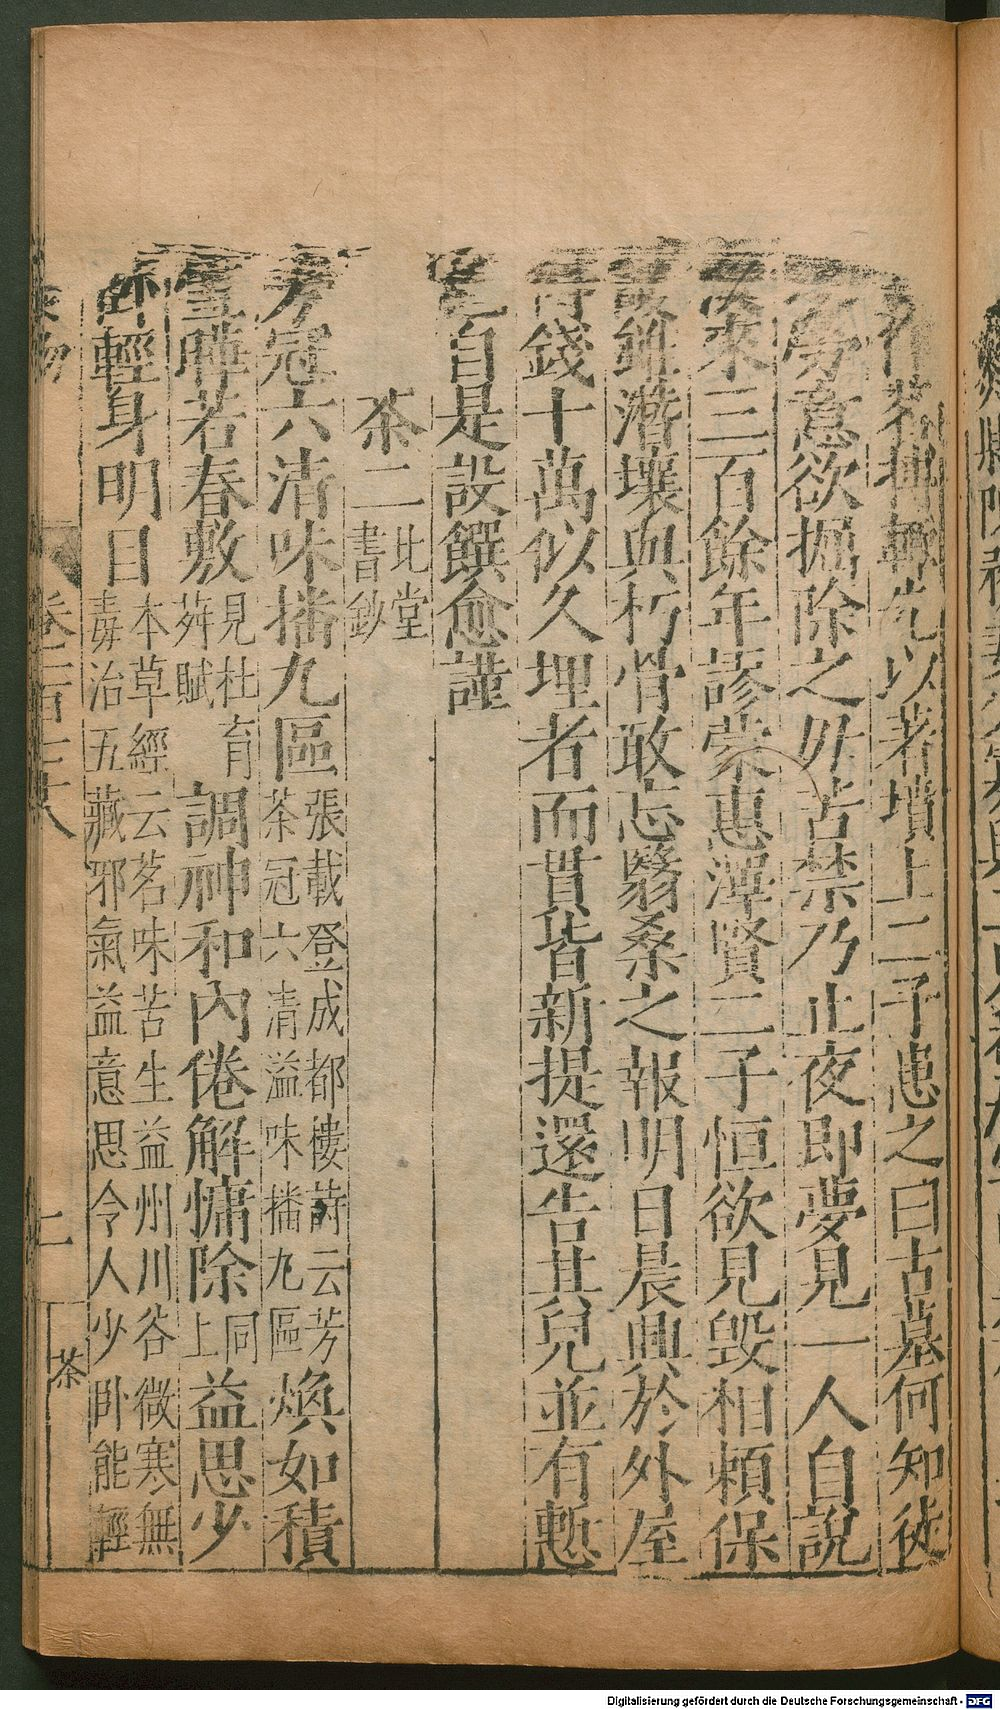 作茗捕輒先以著墳上二子患之曰古墓何知徒
勞意欲掘除之毋苦禁乃止夜即夢見一人自說
沒來三百餘年謬蒙惠澤賢二子恒欲見毀相賴保
護雖潛壤與朽骨敢忘翳桑之報明日晨興於外屋
得錢十萬似久埋者而貫皆新提還告其兒並有慙
色自是設饌愈謹
茶二北堂書鈔
芳冠六清味播九區張載登成都樓詩云芳茶冠六清溢味播九區煥如積
雪曄若春敷見杜育荈賦調神和內倦解慵除同上益思少
卧輕身明目本草經云茗味苦生益州川谷微寒無毒治五藏邪氣益意思令人少卧能輕
茶
Digitalisierung gefördert durch die Deutsche Forschungsgemeinschaft - DFG